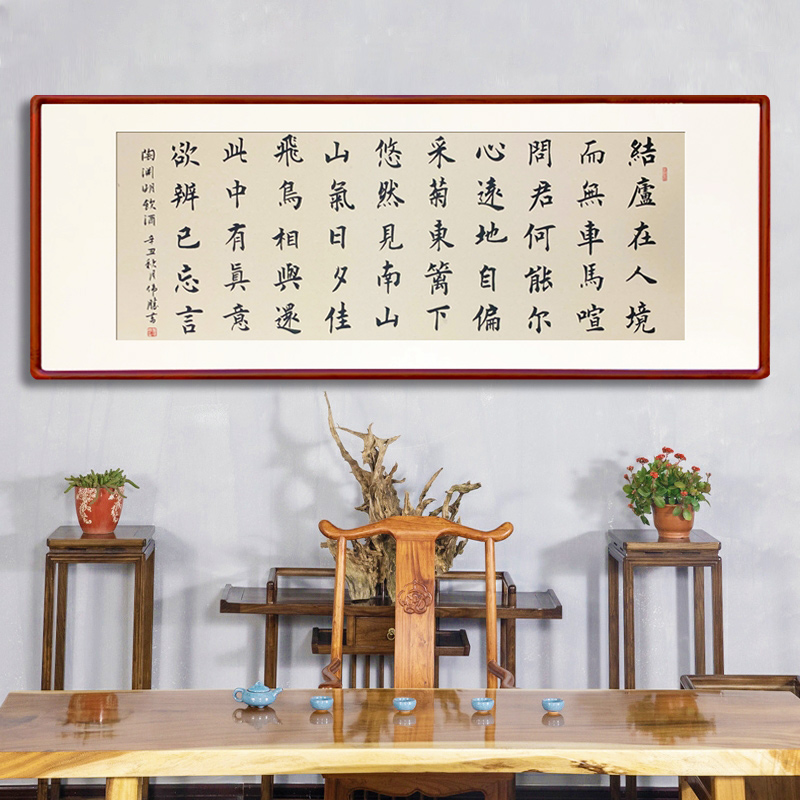 結廬在人境
而無車馬喧
問君何能尔
心遠地自偏
采菊東篱下
悠然見南山
山氣日夕佳
飛鳥相與還
此中有真意
欲辨已忘言
陶渊明飲酒 辛丑秋月伟勝書